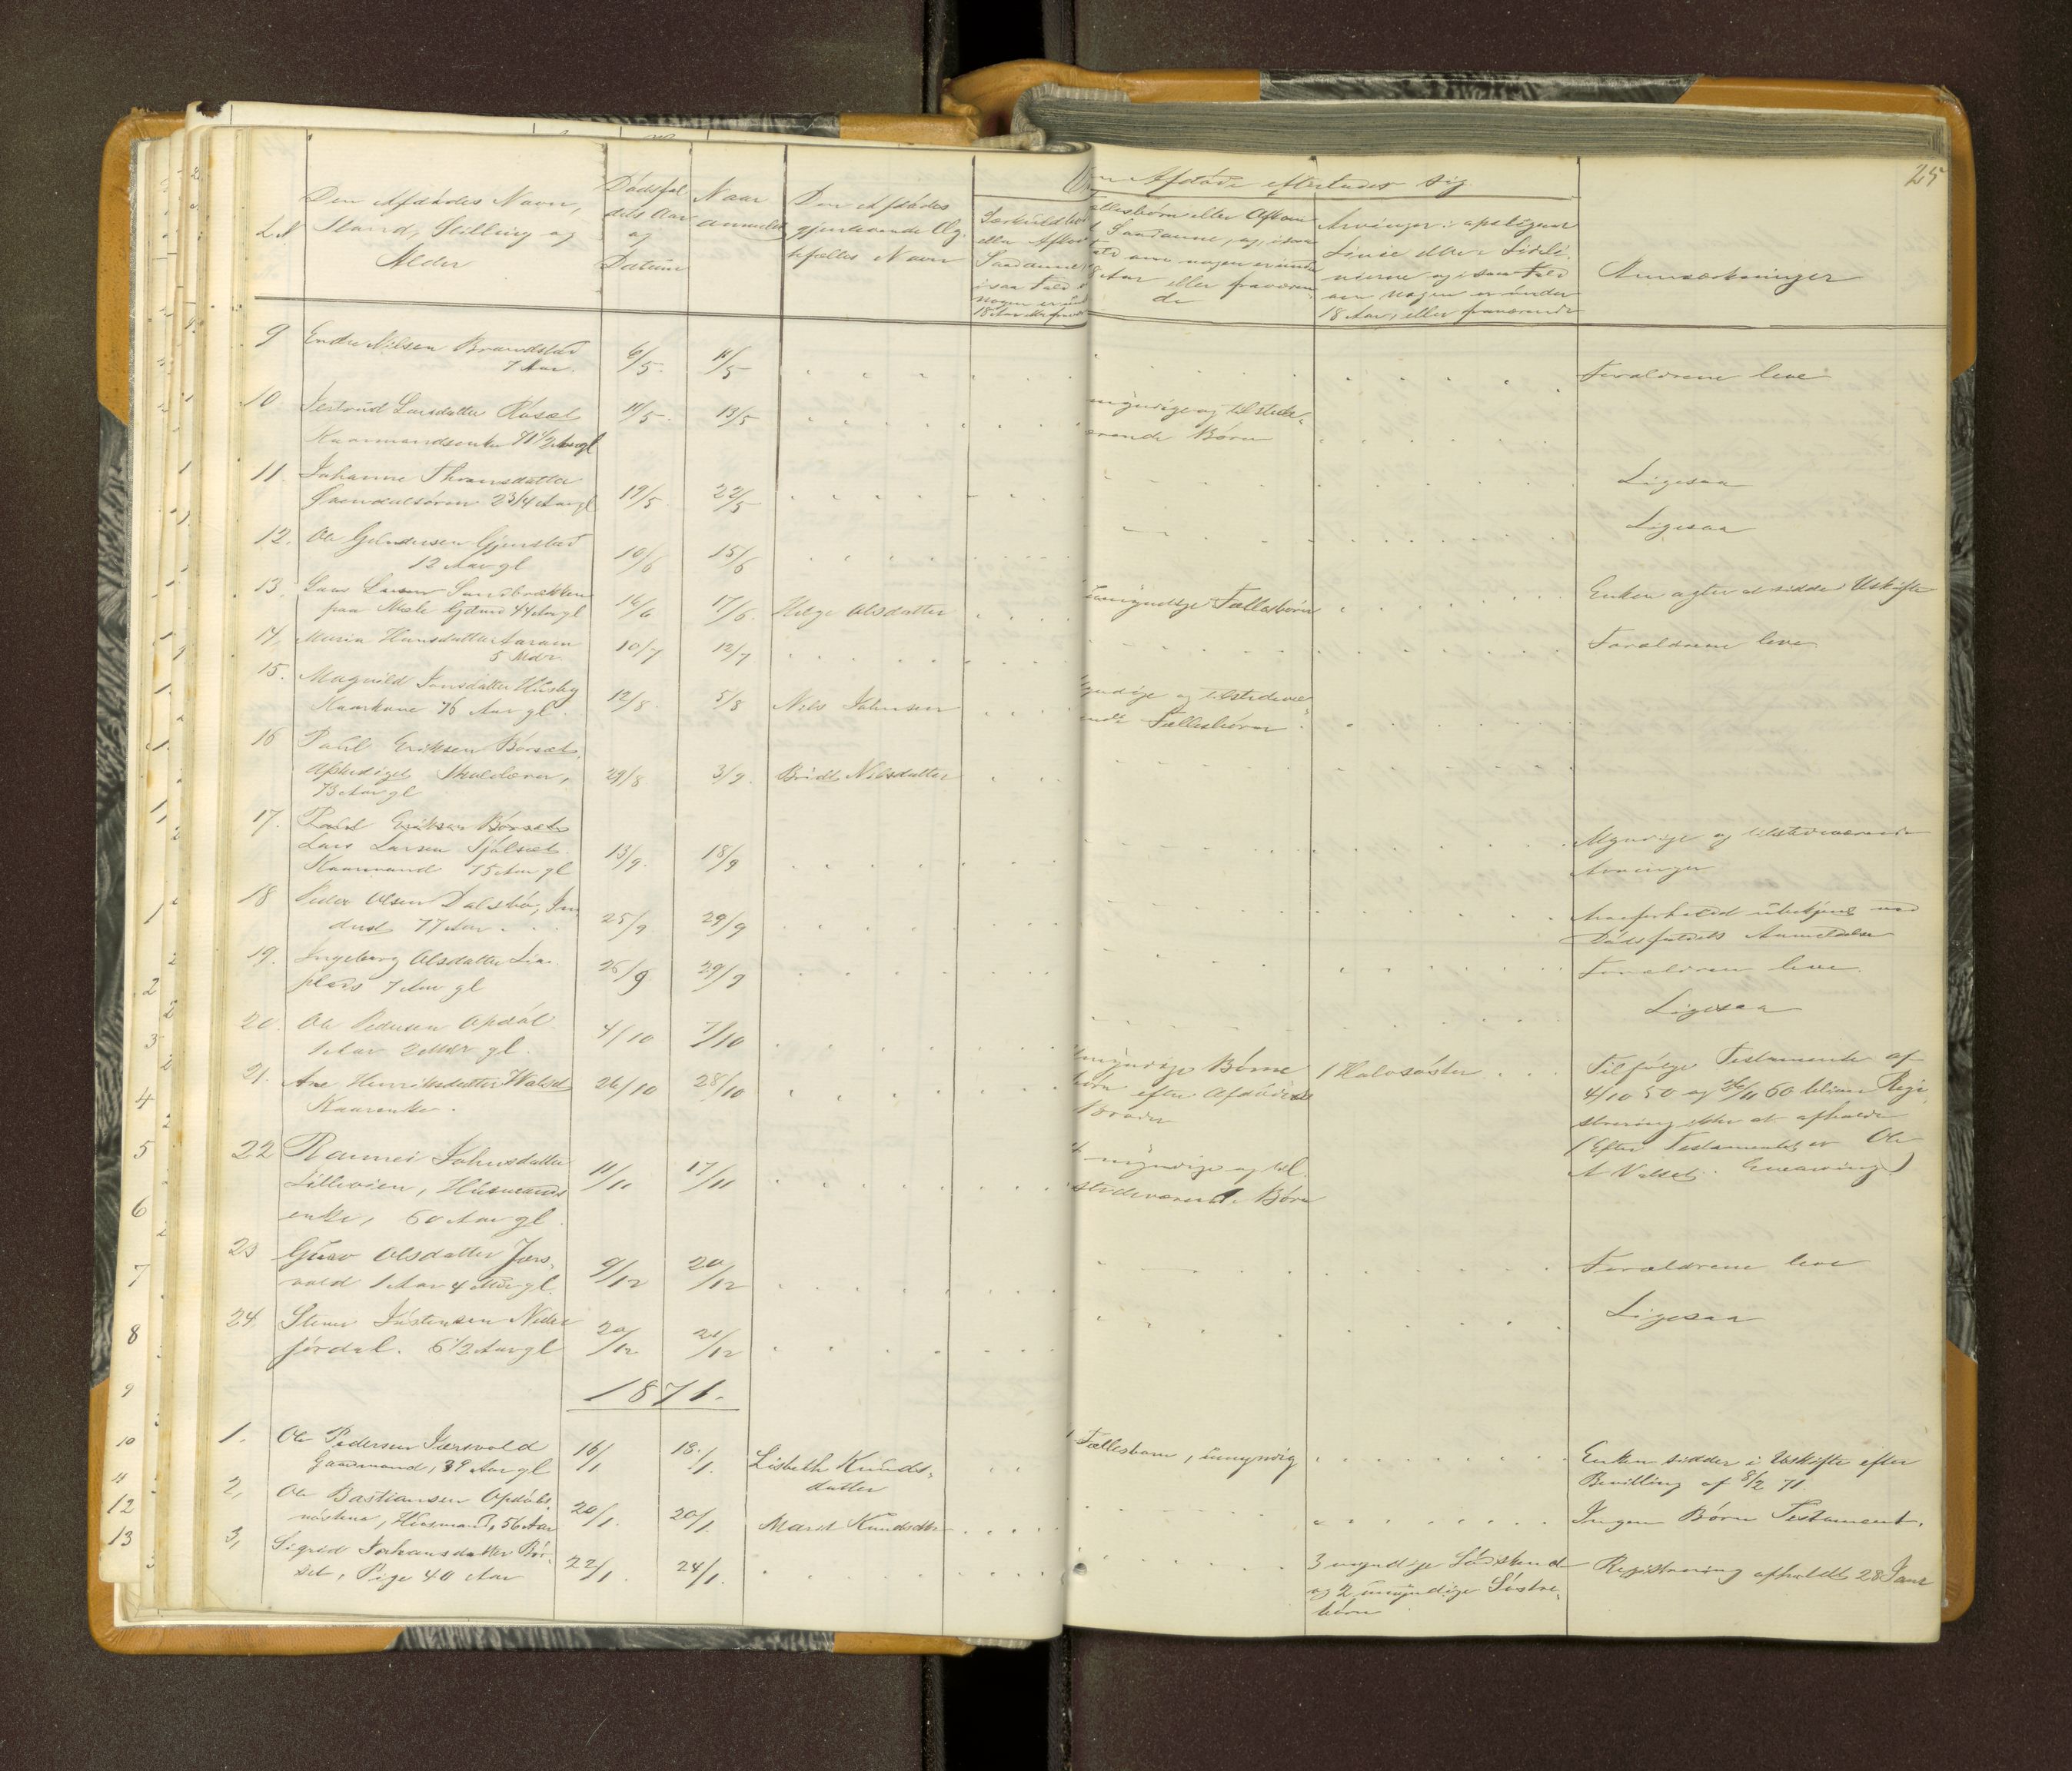 25
Om Afdøde efterlader sig
L.N Den Afdødes Navn, Stand, Stilling og Alder
Dødsfaldets Aar og Datum
Naar anmeldt
Den Afdødes gjenlevende Ægtefælles Navn
Særkuldbørn eller Afkom Saadanne, i saa Fald nogen er under 18 Aar
Fællesbørn eller Afkom af Saadanne, og i saa Fald om nogen er under 18 Aar eller fraværende
Arvinger i opstigende Linie eller Sidelinierne og i saa Fald om nogen er under 18 Aar, eller fraværende
Anmærkninger
9 Endre Nilsen Brandstad
7 Aar. 6/5. 11/5 Forældrene leve
10 Gertrud Larsdatter Røsæt 11/5. 13/5 myndige og tilstede-
Kaarmandsenke 71 1/2 Aar gl værende Børn
11. Johanne Thronsdatter
2 3/4 Aar gl 19/5 22/5 Ligesaa
12. Ole Gjerstad
12 Aar gl 10/6 15/6 Ligesaa
13. Lars Larsen Sandbrækken
paa Gjelme 44 Aar gl 16/6 17/6. Helge Olsdatter umyndige Fællesbørn Enken agter at sidde i Uskifte
14. Maria Hansdatter Aaram
5 Mdr 10/7 12/7 Forældrene leve
15. Magnild Jonsdatter Husby
Kaarkone 76 Aar gl. 12/8. 5/8 Nils Johnsen myndige og tilstedeværende Fællesbørn
16 Paul Eriksen Børsæt,
afskediget Skolelærer,
73 Aar gl 29/8 3/9. Bridt Nilsdatter
17. Paul Eriksen Børsæt
Lars Larsen
Kaarmand 75 Aar gl 13/9. 18/9 Myndige og tilstedeværende
Arvinger
18 Peder Olsen Dalsbø, In-
derst 77 Aar 25/9 29/9 Arveforhold ubekjendt ved
Dødsfaldets Anmeldelse
19. Ingeborg Olsdatter Lia-
plads 7 Aar gl 26/9 29/9 Forældrene leve.
20. Ole Pedersen Opdøl
1 Aar 2 Mdr gl. 4/10 7/10 Ligesaa
21. Ane Henriksdatter Walset
Kaarenke. 26/10 28/10 myndige Børne
børn efter Afdødes
Broder 1 Halvsøster Tilfølge Testamente af
4/10 50 og 26/11 60 bliver Regi-
strering ikke at afholde
(Efter Testamentet er Ole
A Valset Enearving)
22 Rannei Johnsdatter
Lillevien, Husmands
enke, 60 Aar gl. 11/11 17/11 4 myndige og til
stedeværende Børn
23 Guro Olsdatter Jers-
vold 1 Aar 4 Mdr gl. 9/12 20/12 Forældrene leve
24. Stener Jostensen Neder
fjordal. 6 1/2 Aar gl 20/12 21/12 Ligesaa
1871.
1. Ole Pedersen Jersvold
Gaardmand, 39 Aar gl 16/1 18/1. Lisbeth Knuds-
datter 1 Fællesbarn, umyndig Enken sidder i Uskifte efter
Bevilling af 8/2 71.
2, Ole Bastiansen Opdøls-
Husmand, 56 Aar 20/1. 20/1. Marit Knudsdatter Ingen Børn Testament.
3, Sigrid Johansdatter Bør-
set, Pige 40 Aar 22/1. 24/1. 3 myndige Sødskende
og 2 umyndige Søstre-
børn Registrering afholdt 28 Janr